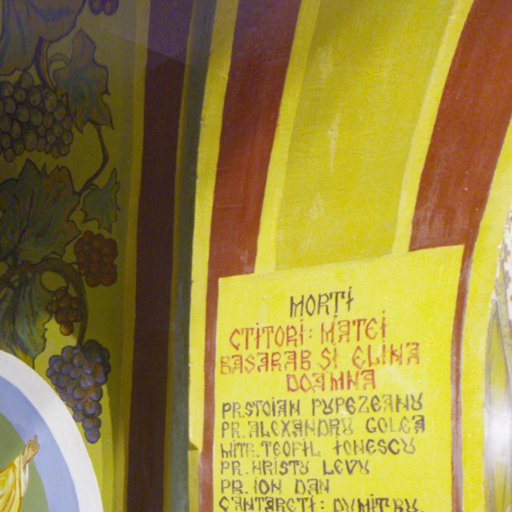 MORTI
CTITORI: MATEI
BASARAB SI ELINA
DOAMNA
PR. STOIAN PUPEZEANU
PR. ALEXANDRU GOLEA
MITR. TEOFIL IONESCU
PR. HRISTU LEVU
PR. ION DAN
CANTARETI: DUMITRU